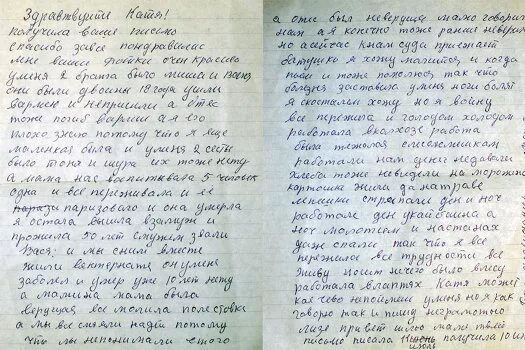 Здравствуйте Катя!
получила ваше письмо
спасибо завсе пондравилис
мне ваши фотки очен красиво
уменя 2 брата было миша и Ваня
они были двоины 18 года ушли
вармию и непришли а отес
тоже погиб вармии а я его
плохо знаю потому что я еще
маленкая была и уменя 2 сестры
было тоня и шура их тоже нету
а мама нас воспитывала 5 человек
одна и все переживала и ее
паризовало и она умерла
я остала вышла взамуж и
прожила 50 лет смужем звали
Вася и мы сним вместе
жили вентернате он уменя
заболел и умер уже 10 лет нету
а мамина мама была
верущая все молила поле ставка
а мы все смяли надей потому
что мы непонимали этого
а отес был неверуща мало говорил
нам а я конечно тоже ранше неверила
но асейчас кнам суда приезжает
батушко я хожу молится и когда
пы и тоже помолюсь так что
болезня заставила уменя ноги болят
я скостылем хожу но я войну
все пережила и голодем холодом
работала вколхозе работа
была тяжолая смежшками
работали нам денег недавали
хлеба тоже невидели на морожной
картошке жили да натраве
лепешки стряпали ден и ноч
работале ден укамбаина а
ноч молотием и настанах
даже спали так что я все
пережила все трудности все
живу носит ничего было влесу
работала влаптях Катя может
кае чево непоймеш уменя но я как
говорю так и пишу неграмотно
лизе привет шлю мале твоей
письмо писала июль получила 10 июля